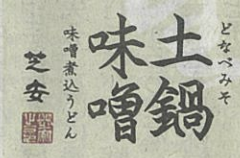 どなべみそ
土鍋
味噌
味噌煮込うどん
芝安